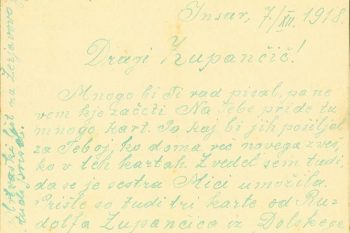 Insar, 7./XII. 1918.
Dragi Zupančič!
Mnogo bi Ti rad pisal, pa ne
vem kje začeti. Na Tebe pride tu
mnogo kart. Pa kaj bi jih pošiljal
za Teboj, ko doma več novega zveš,
ko v teh kartah. Zvedel sem tudi,
da se je sestra Mici umožila.
Prišle so tudi tri karte od Ru-
dolfa Zupančiča iz Dolskega